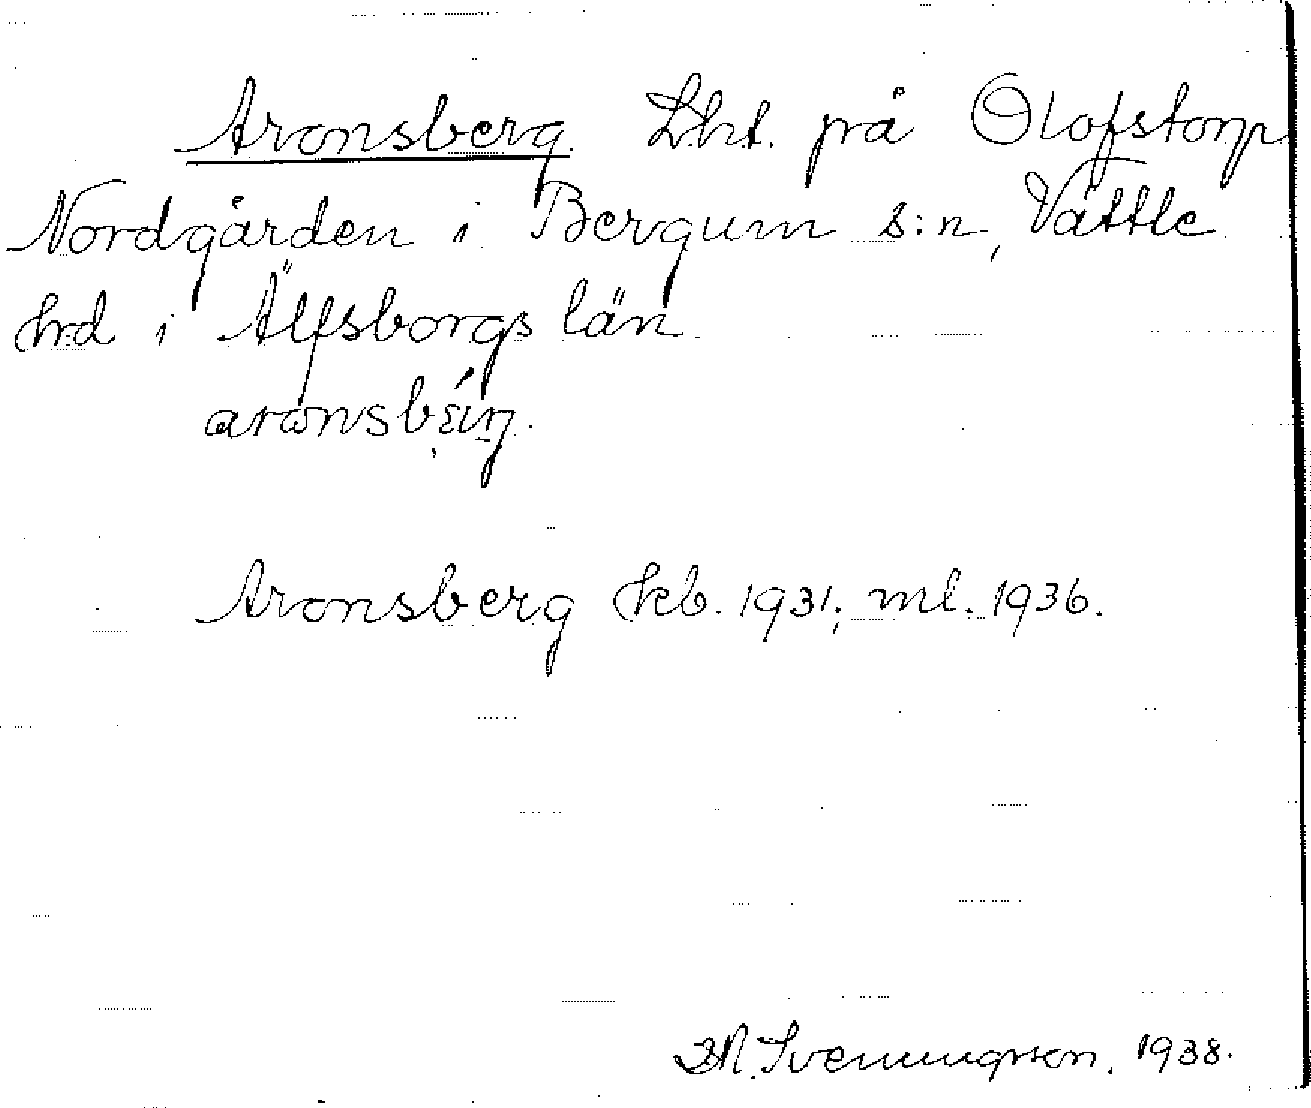 Aronsberg. Lht. på Olofstorp
Nordgården i Bergum s:n, Vättle
hrd i Älfsborgs län
Aronsberg kb. 1931; ml. 1936.
Svenningson. 1938.